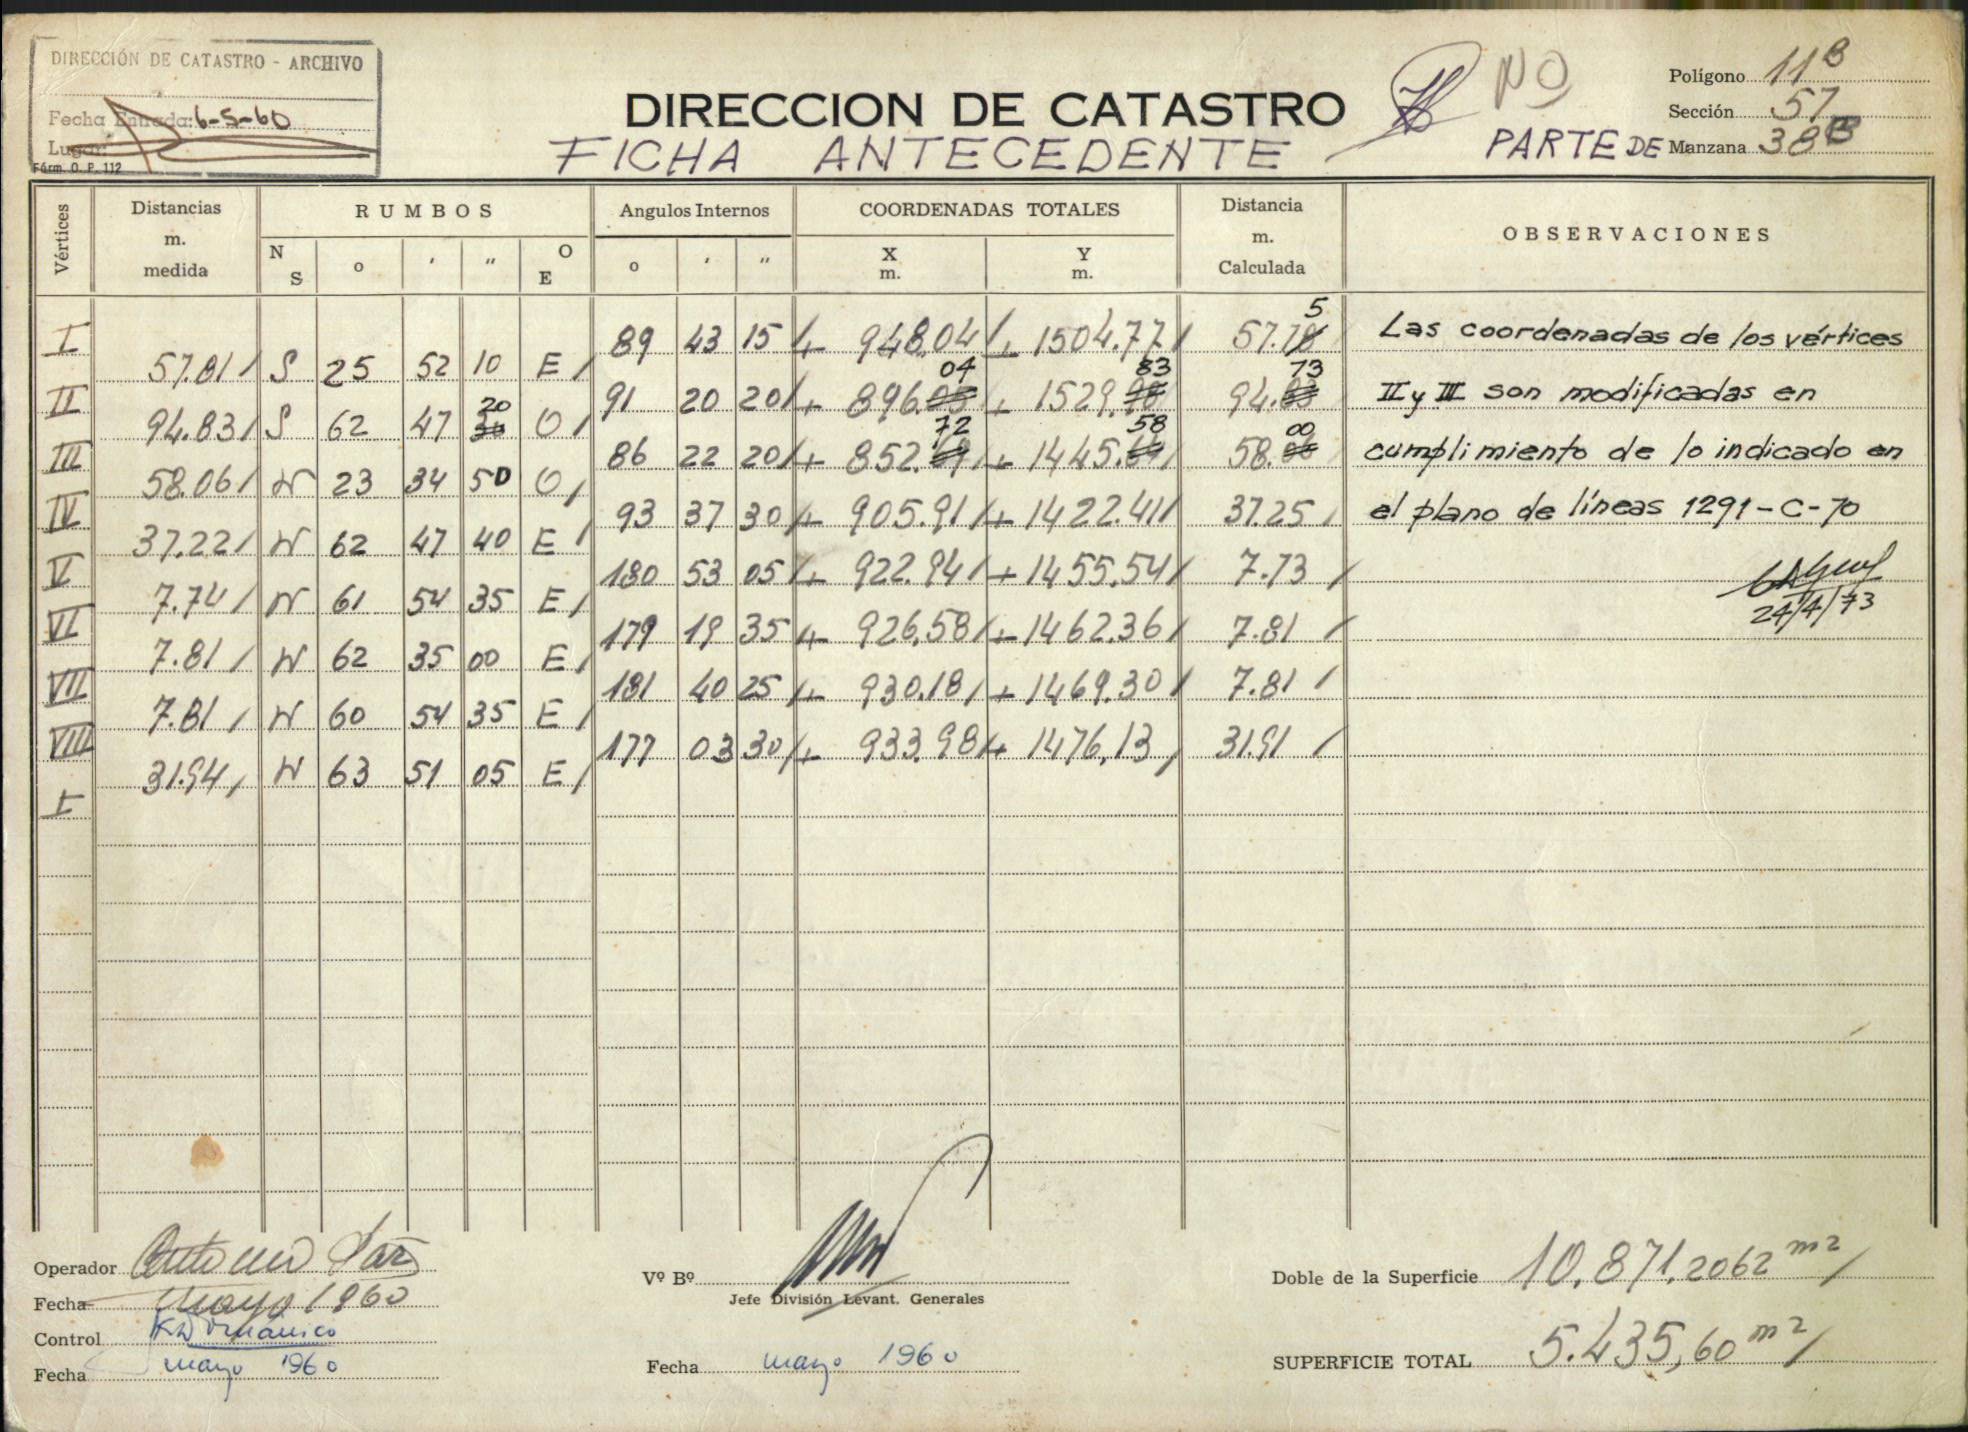 DIRECCIÓN DE CATASTRO - ARCHIVO
Fecha Entrada: 6-5-60
Lugar:
Fórm. O. P. 112
DIRECCION DE CATASTRO
FICHA ANTECEDENTE
NO
Polígono 11B
Sección 57
PARTE DE Manzana 38B
Vértices
Distancias m. medida
RUMBOS
N S ° ′ ″ O E
Angulos Internos
° ′ ″
COORDENADAS TOTALES
X m. Y m.
Distancia m. Calculada
OBSERVACIONES
I 89 43 15 + 948.04 + 1504.77 57.75
57.81 S 25 52 10 E
II 91 20 20 + 896.04 + 1529.83 94.73
94.83 S 62 47 20 O
III 86 22 20 + 852.72 + 1445.58 58.00
58.06 N 23 34 50 O
IV 93 37 30 + 905.91 + 1422.41 37.25
37.22 N 62 47 40 E
V 180 53 05 + 922.94 + 1455.54 7.73
7.74 N 61 54 35 E
VI 179 19 35 + 926.58 + 1462.36 7.81
7.81 N 62 35 00 E
VII 181 40 25 + 930.18 + 1469.30 7.81
7.81 N 60 54 35 E
VIII 177 03 30 + 933.98 + 1476,13 31.91
31.94 N 63 51 05 E
I
Las coordenadas de los vértices
II y III son modificadas en
cumplimiento de lo indicado en
el plano de líneas 1291-C-70
24/4/73
Operador
Fecha mayo 1960
Control
Fecha mayo 1960
Vº Bº
Jefe División Levant. Generales
Fecha mayo 1960
Doble de la Superficie 10.871.2062 m2
SUPERFICIE TOTAL 5.435,60 m2